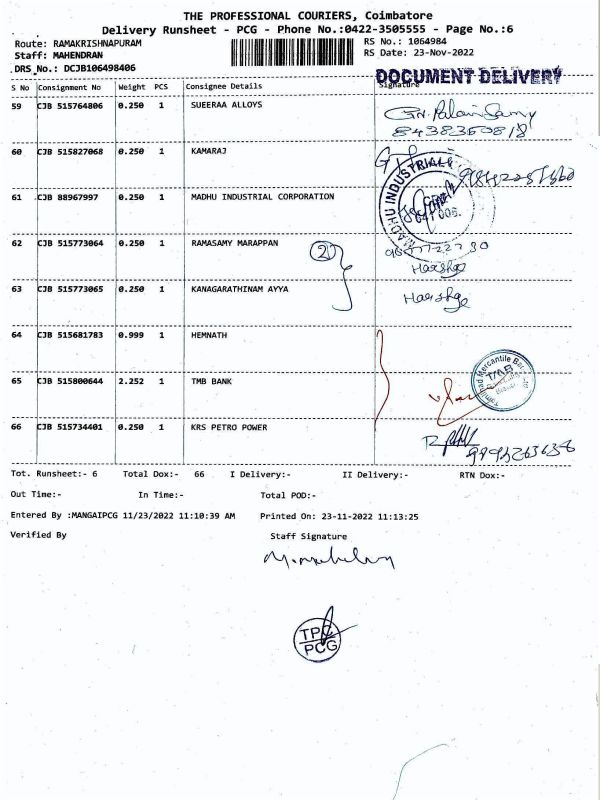 THE PROFESSIONAL COURIERS, Coimbatore
Delivery Runsheet - PCG - Phone No.:0422-3505555 - Page No.:6
Route: RAMAKRISHNAPURAM
RS No.: 1064984
Staff: MAHENDRAN
RS Date: 23-Nov-2022
DRS No.: DCJB106498406
DOCUMENT DELIVERY
S No Consignment No Weight PCS Consignee Details Signature
59 CJB 515764806 0.250 1 SUEERAA ALLOYS
60 CJB 515827068 0.250 1 KAMARAJ
61 CJB 88967997 0.250 1 MADHU INDUSTRIAL CORPORATION
MADHU INDUSTRIAL
62 CJB 515773064 0.250 1 RAMASAMY MARAPPAN
2
63 CJB 515773065 0.250 1 KANAGARATHINAM AYYA
64 CJB 515681783 0.999 1 HEMNATH
65 CJB 515800644 2.252 1 TMB BANK
66 CJB 515734401 0.250 1 KRS PETRO POWER
Tot. Runsheet:- 6 Total Dox:- 66 I Delivery:- II Delivery:- RTN Dox:-
Out Time:- In Time:- Total POD:-
Entered By :MANGAIPCG 11/23/2022 11:10:39 AM Printed On: 23-11-2022 11:13:25
Verified By Staff Signature
TPC
PCG